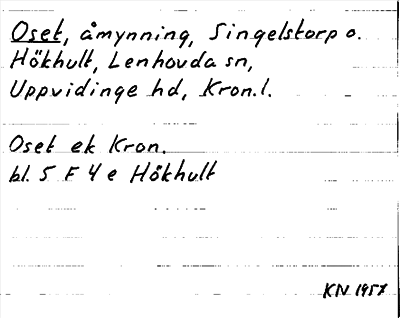 Oset, åmynning, Singelstorp o.
Hökhult, Lenhovda sn,
Uppvidinge hd, Kron. l.
Oset ek Kron.
bl. 5 F 4 e Hökhult
KN 1957